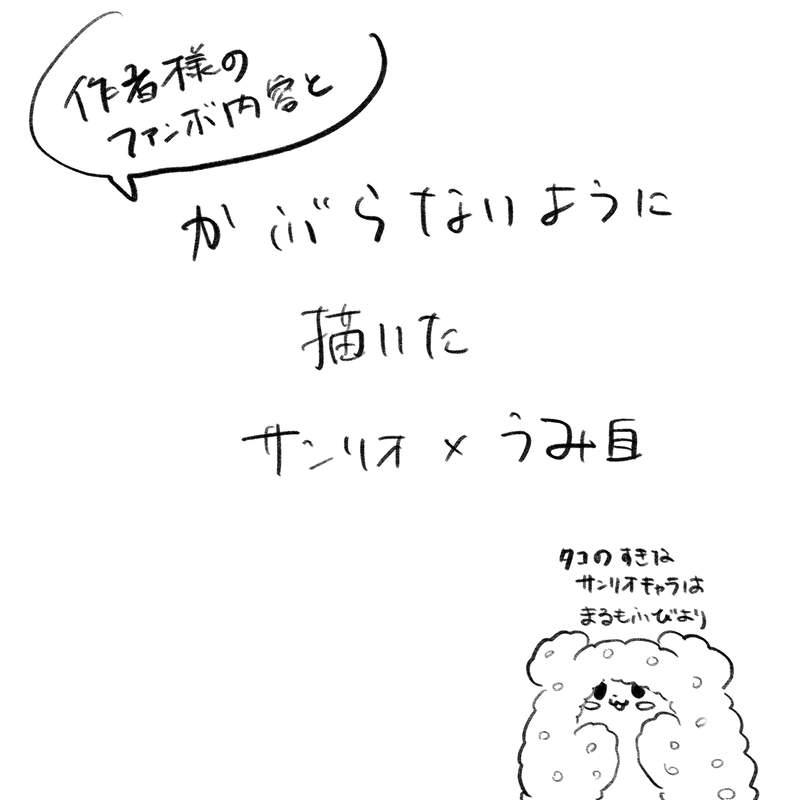 作者様の
ファンボ内容と
かぶらないように
描いた
サンリオ×うみ自
タコのすきな
サンリオキャラは
まるもふびより